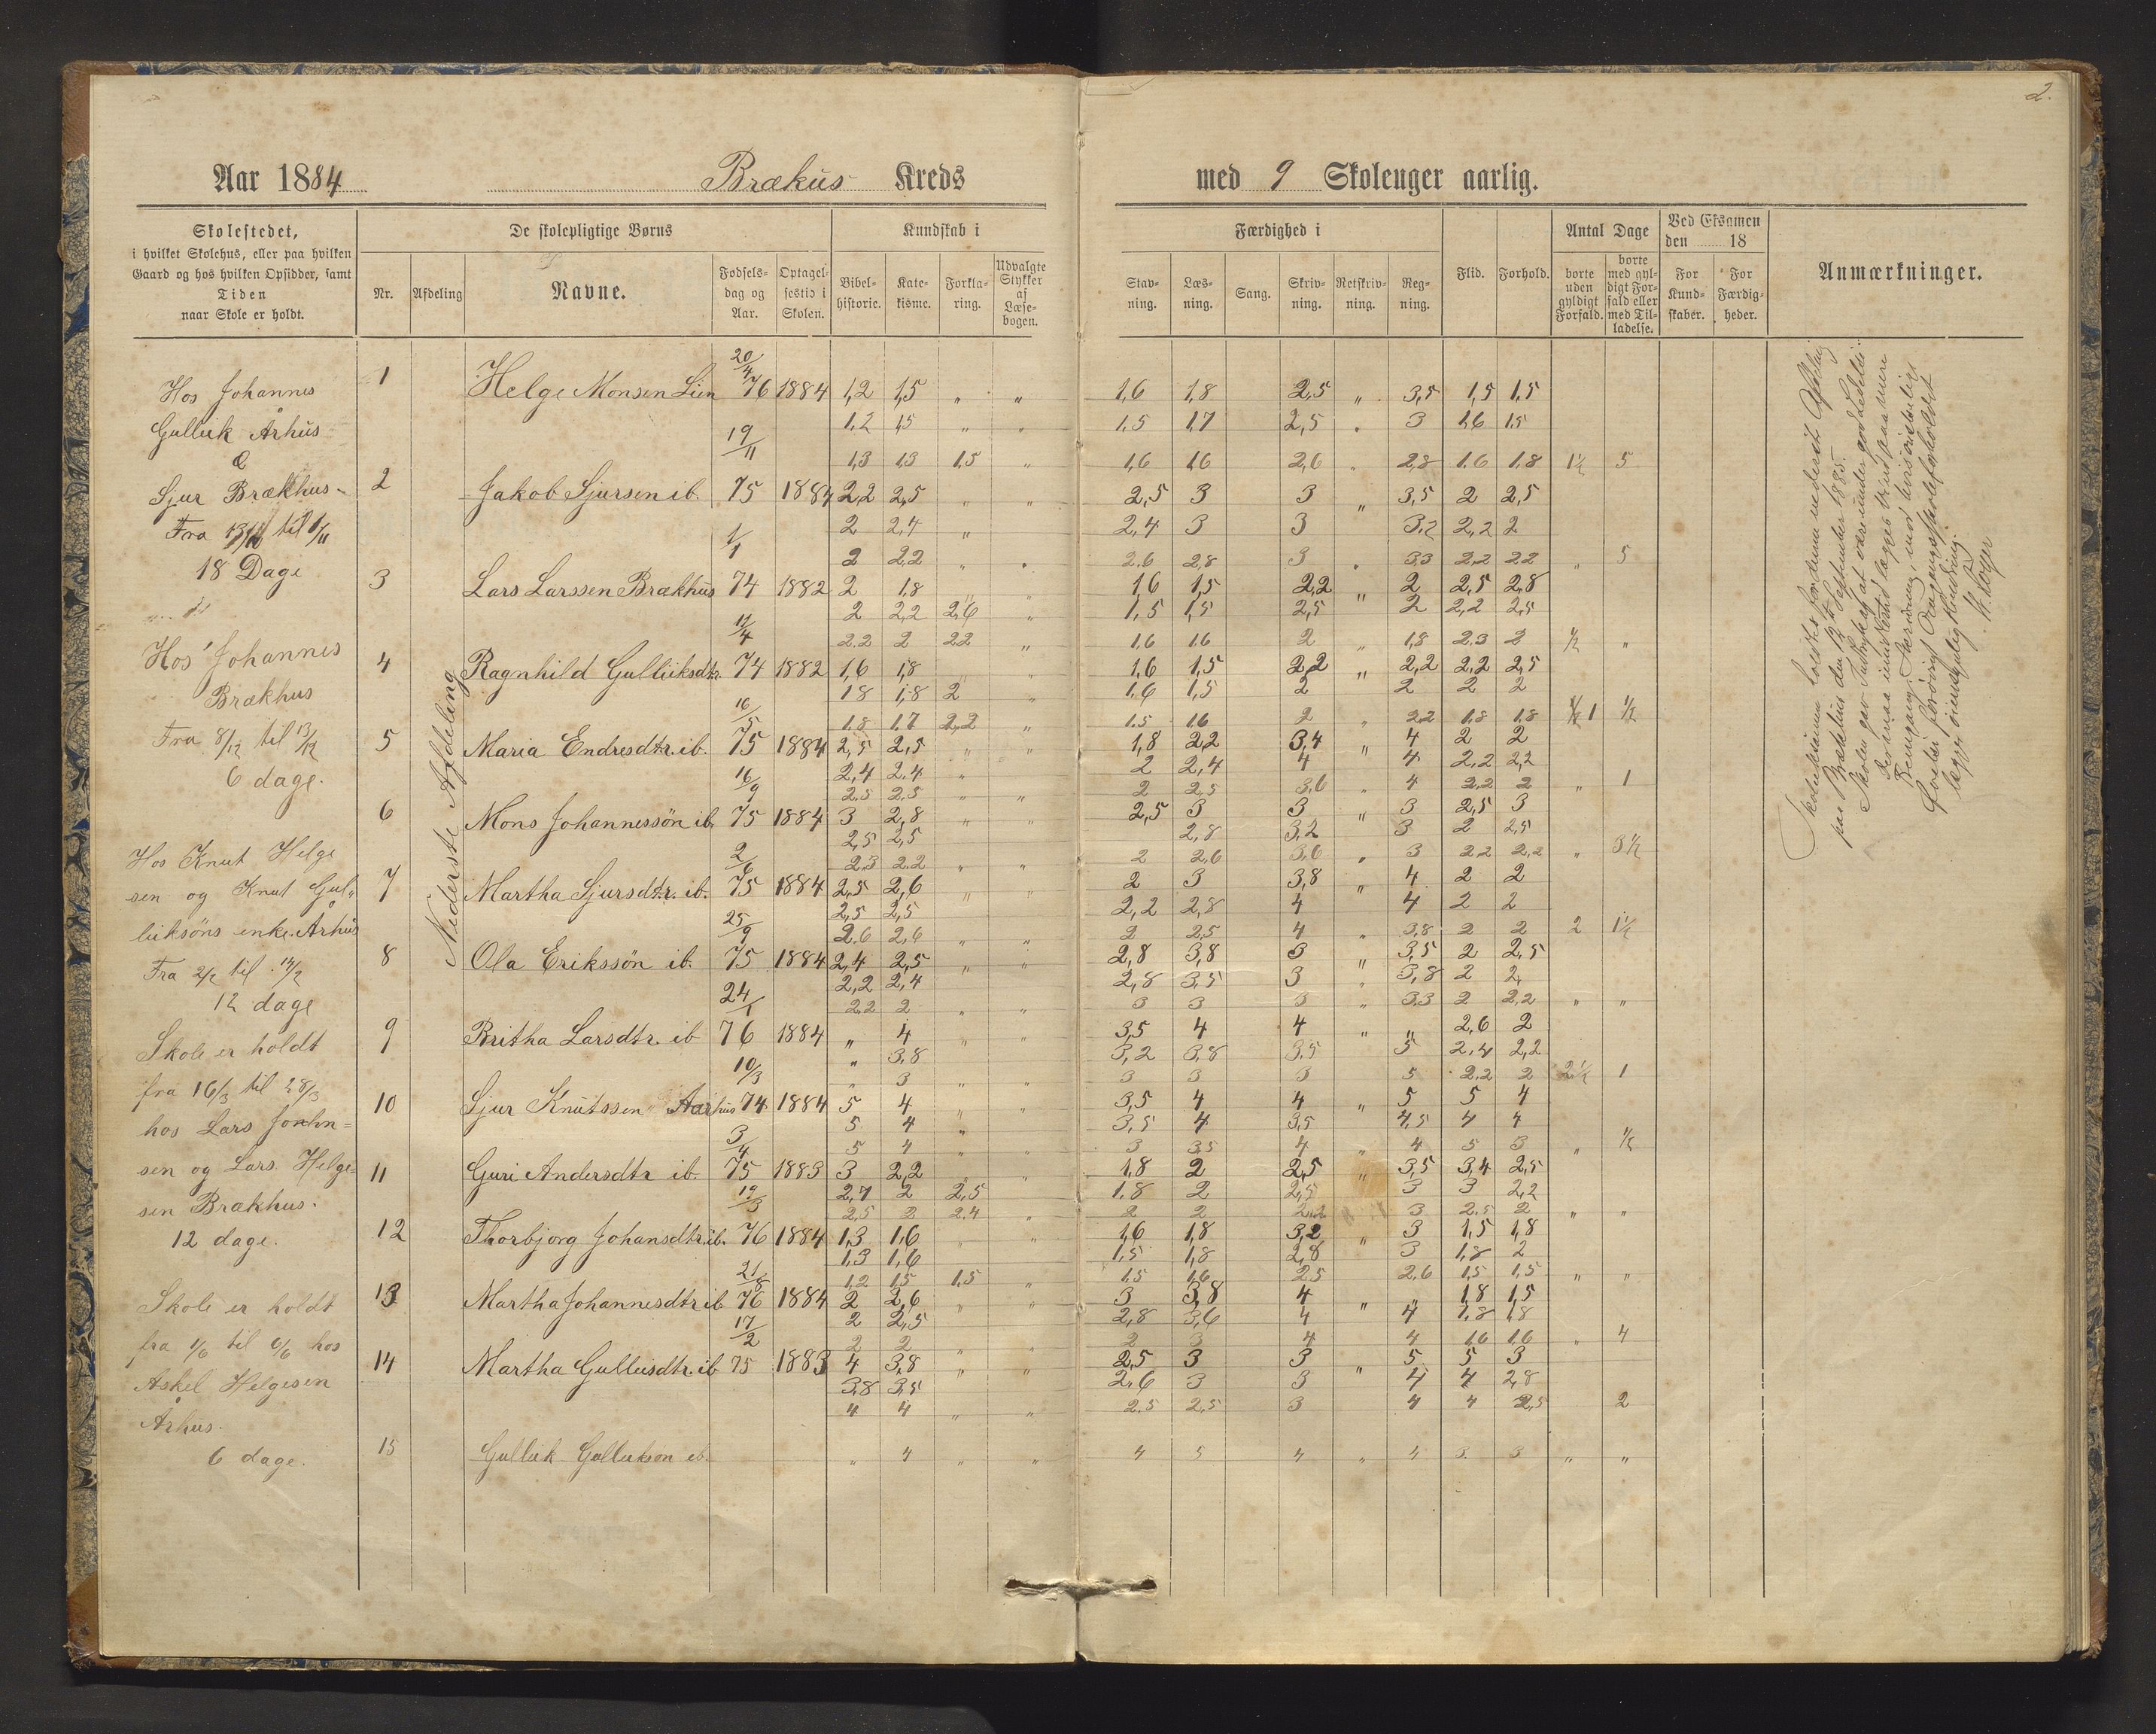 2.
Aar 1884 Brækus Kreds med 9 Skoleuger aarlig.
Skolestedet,
i hvilket Skolehus, eller paa hvilken
Gaard og hos hvilken Opsidder, samt
Tiden
naar Skole er holdt.
De skolepligtige Børns
Nr. Afdeling Navne. Fødselsdag og Aar. Optagelsestid i Skolen.
Kundskab i
Bibelhistorie. Katekisme. Forklaring. Udvalgte Stykker af Læsebogen.
Færdighed i
Stavning. Læsning. Sang. Skrivning. Retskrivning. Regning.
Flid. Forhold.
Antal Dage
borte uden gyldigt Forfald. borte med gyldigt Forfald eller med Tilladelse.
Ved Eksamen
den 18
For Kundskaber. For Færdigheder.
Anmærkninger.
Hos Johannes
Gulleik Århus
&
Sjur Brækhus
18 Dage
Hos Johannes
Brækhus
Fra 8/12 til 13/12
6 dage.
Hos Knut Helge
sen og Knut Gul„
leiksöns enke. Århus
Fra 2/2 til 14/2
12 dage
Skole er holdt
fra 16/3 til 28/3
hos Lars
sen og Lars Helge=
sen Brækhus.
12 dage.
Skole er holdt
fra 1/6 til 6/6 hos
Askel Helgesen
Århus.
6 dage.
Nederste Afdeling
1 Helge Monsen Lien 20/4 76 1884 1,2 1,5 „ „ 1,6 1,8 2,5 „ 3,5 1,5 1,5
1,2 1,5 „ „ 1,5 1,7 2,5 „ 3 1,6 1,5
1,3 1,3 1,5 „ 1,6 1,6 2,6 „ 2,8 1,6 1,8 1½ 5
2 Jakob Sjursen ib. 19/11 75 1884 2,2 2,5 „ „ 2,5 3 3 „ 3,5 2 2,5
2 2,4 „ 2,4 3 3 3,2 2,2 2
2 2,2 „ „ 2,6 2,8 3 „ 3,3 2,2 2,2 „ 5
3 Lars Larssen Brækhus 1/1 74 1882 2 1,8 „ „ 1,6 1,5 2,2 „ 2 2,5 2,8
2 2,2 2,6 „ 1,5 1,5 2,5 2 2,2 2,5
2,2 2 2,2 „ 1,6 1,6 2 „ 1,8 2,3 2 ½ „
4 Ragnhild Gulleiksdtr. 11/4 74 1882 1,6 1,8 „ „ 1,6 1,5 2,2 „ 2,2 2,2 2,5
1,8 1,8 2 „ 1,6 1,5 2 2 2 2
1,8 1,7 2,2 „ 1,5 1,6 2 „ 2,2 1,8 1,8 1 ½
5 Maria Endresdtr. ib. 16/5 75 1884 2,5 2,5 „ „ 1,8 2,2 3,4 „ 4 2 2
2,4 2,4 „ 2 2,4 4 4 2,2 2,2
2,5 2,5 „ „ 2 2,5 3,6 „ 4 2,2 2 „ 1
6 Mons Johannessön ib. 16/9 75 1884 3 2,8 „ „ 2,5 3 3 „ 3 2,5 3
2,5 2,5 2,8 3,2 3 2 2,5
2,3 2,2 „ „ 2 2,6 3,6 „ 3 2,2 2,2 „ 3½
7 Martha Sjursdtr. ib. 2/6 75 1884 2,5 2,6 „ „ 2 3 3,8 „ 4 2 2
2,5 2,5 2,2 2,8 4 4 2 2
2,6 2,6 „ „ 2 2,5 4 „ 3,8 2 2 2 1½
8 Ola Erikssön ib. 25/9 75 1884 2,4 2,5 „ „ 2,8 3,8 3 „ 3,5 2 2,5
2,2 2,4 2,8 3,5 3 „ 3,8 2 2
2,2 2 „ „ 3 3 3 „ 3,3 2 2,2 „ „
9 Britha Larsdtr. ib 24/1 76 1884 „ 4 „ „ 3,5 4 4 „ „ 2,6 2
„ 3,8 3,2 3,8 3,5 5 2,4 2,2
„ 3 „ „ 3 3 3 5 2,2 2 2½ 1
10 Sjur Knutssen Aarhus 10/3 74 1884 5 4 „ „ 3,5 4 4 „ 5 5 4
5 4 „ 3,5 4 3,5 4,5 4 4
5 4 „ „ 3 3,5 4 „ 4 5 3 „ ½
11 Guri Andersdtr ib. 3/4 75 1883 3 2,2 „ 1,8 2 2,5 „ 3,5 3,4 2,5
2,7 2 2,5 1,8 2 2,5 3 3 2,2
2,5 2 2,4 „ 2 2 2,2 3 2,5 2 „ „
12 Thorbjørg Johansdtr. ib. 12/3 76 1884 1,3 1,6 „ „ 1,6 1,8 3,2 „ 3 1,5 1,8
1,3 1,6 1,5 1,8 2,8 3 1,8 2
1,2 1,5 1,5 „ 1,5 1,6 2,5 2,6 1,5 1,5 „ „
13 Martha Johannesdtr ib 21/8 76 1884 2 2,6 „ „ 3 3,8 4 „ „ 1,8 1,5
2 2,5 2,8 3,6 4 4 1,8 1,8
2 2 „ 2 3 4 4 1,6 1,6 „ 4
14 Martha Gulleisdtr. ib 17/2 75 1883 4 3,8 „ „ 2,5 3 3 „ 5 5 3
3,8 3,5 2,6 3 3 4 4 2,8
4 4 „ „ 2,5 2,5 3 4 4 2,5 2
15 Gulleik Gulleikson ib. „ 4 „ „ 4 5 4 „ 4 3 3 „ „
Skolekisenn for denne nederste Afdeling
paa Brækhus den 12te September 1885.
Skolen gav Indtryk af at være under god Ledelse.